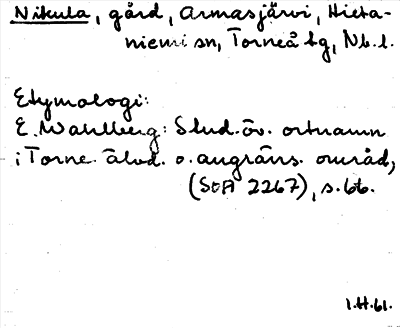 Nikula, gård, Armasjärvi, Hieta-
niemi sn, Torneå tg, Nb. l.
Etymologi:
E. Wahlberg: Stud. öv. ortnamn
i Torne älvd. o. angräns. områd,
(SOA 2267), s. 66.
1.H.61.